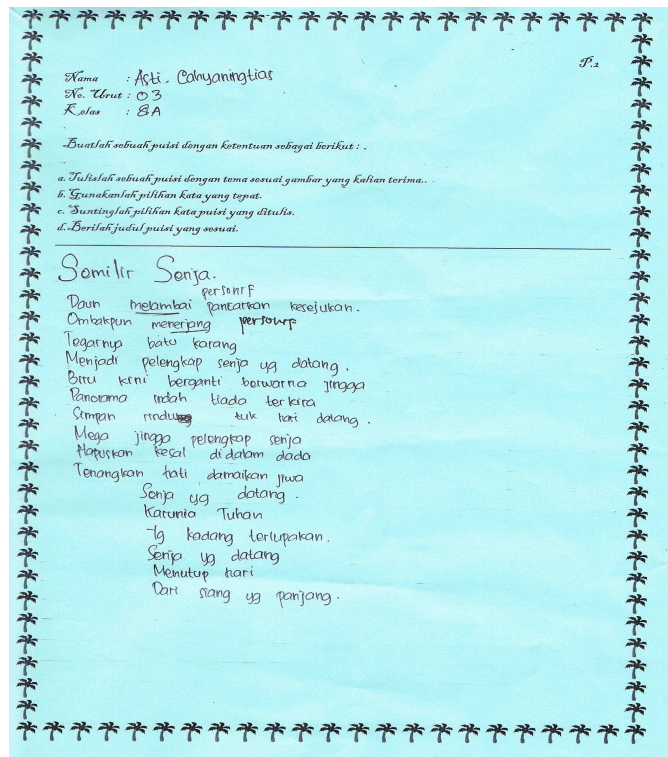 P.2
Nama : Asti. Cahyaningtias
No. Urut : 03
Kelas : 8A
Buatlah sebuah puisi dengan ketentuan sebagai berikut : .
a. Tulislah sebuah puisi dengan tema sesuai gambar yang kalian terima..
b. Gunakanlah pilihan kata yang tepat.
c. Suntinglah pilihan kata puisi yang ditulis.
d. Berilah judul puisi yang sesuai.
Semilir Senja.
personif
Daun melambai pancarkan kesejukan.
Ombakpun menerjang personif
Tegarnya batu karang
Menjadi pelengkap senja yg datang.
Biru kini berganti berwarna jingga
Panorama indah tiada terkira
Simpan rindu tuk hari datang.
Mega jingga pelengkap senja
Hapuskan kesal didalam dada
Tenangkan hati, damaikan jiwa
Senja yg datang.
Karunia Tuhan
Yg kadang terlupakan.
Senja yg datang
Menutup hari
Dari siang yg panjang.